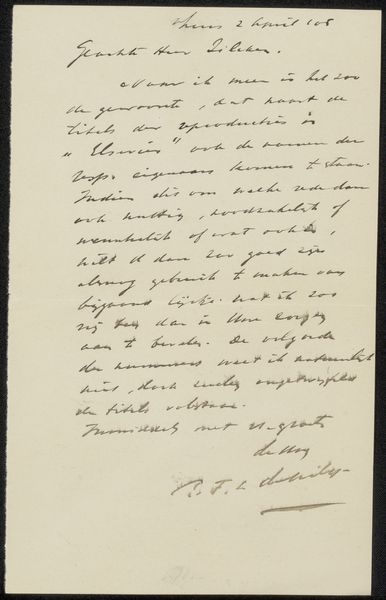 Thuis 2 April '08
Geachte Heer Zilcken.
Naar ik meen is het zoo
de gewoonte, dat naast de
titels der reproducties in
"Elsevier" ook de namen der
resp. eigenaars komen te staan.
Indien dit om welke reden dan
ook nuttig, noodzakelijk of
wenschelijk of wat ook is,
wilt U dan zoo goed zijn
alsnog gebruik te maken van
bijgaand lijstje. dat ik zoo
vrij ben dan in Uwe zorgen
aan te bevelen. De volgorde
der nummers weet ik natuurlijk
niet, doch zullen ongetwijfeld
de titels volstaan.
Inmiddels met vr. groete